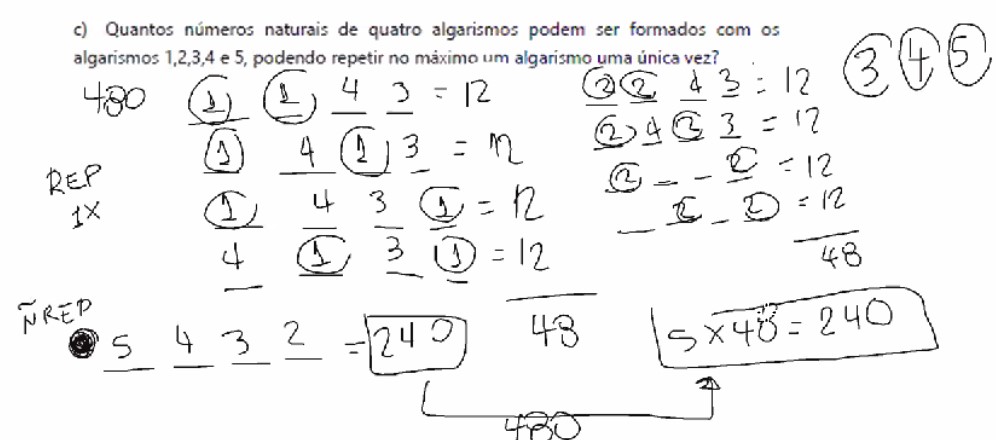 c) Quantos números naturais de quatro algarismos podem ser formados com os
algarismos 1,2,3,4 e 5, podendo repetir no máximo um algarismo uma única vez?
3 4 5
480 1 1 4 3 = 12
2 2 4 3 = 12
1 4 1 3 = 12
2 4 2 3 = 12
REP
1X
1 4 3 1 = 12
2 _ _ 2 = 12
4 1 3 1 = 12
_ 2 _ 2 = 12
48
48
ÑREP
5 4 3 2 = 240
5 x 48 = 240
480